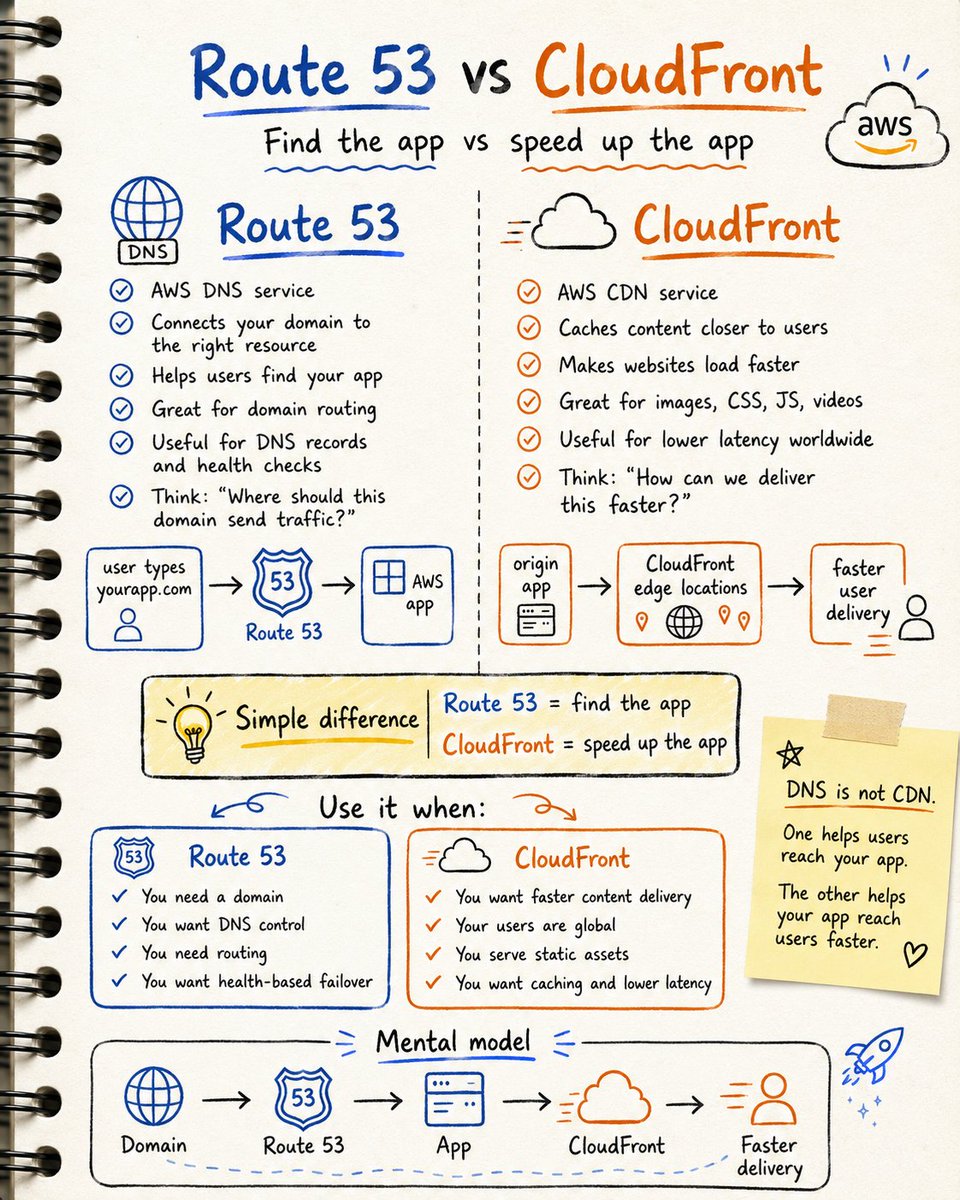 Route 53 vs CloudFront
Find the app vs speed up the app
aws
DNS
Route 53
AWS DNS service
Connects your domain to
the right resource
Helps users find your app
Great for domain routing
Useful for DNS records
and health checks
Think: “Where should this
domain send traffic?”
user types
yourapp.com
53
Route 53
AWS
app
CloudFront
AWS CDN service
Caches content closer to users
Makes websites load faster
Great for images, CSS, JS, videos
Useful for lower latency worldwide
Think: “How can we deliver
this faster?”
origin
app
CloudFront
edge locations
faster
user
delivery
Simple difference
Route 53 = find the app
CloudFront = speed up the app
Use it when:
53
Route 53
You need a domain
You want DNS control
You need routing
You want health-based failover
CloudFront
You want faster content delivery
Your users are global
You serve static assets
You want caching and lower latency
DNS is not CDN.
One helps users
reach your app.
The other helps
your app reach
users faster.
Mental model
Domain
53
Route 53
App
CloudFront
Faster
delivery